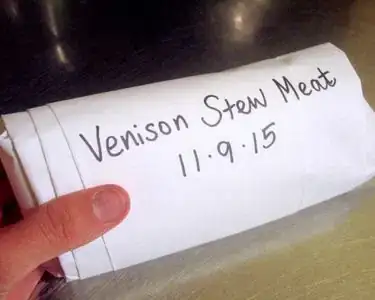 Venison Stew Meat
11.9.15